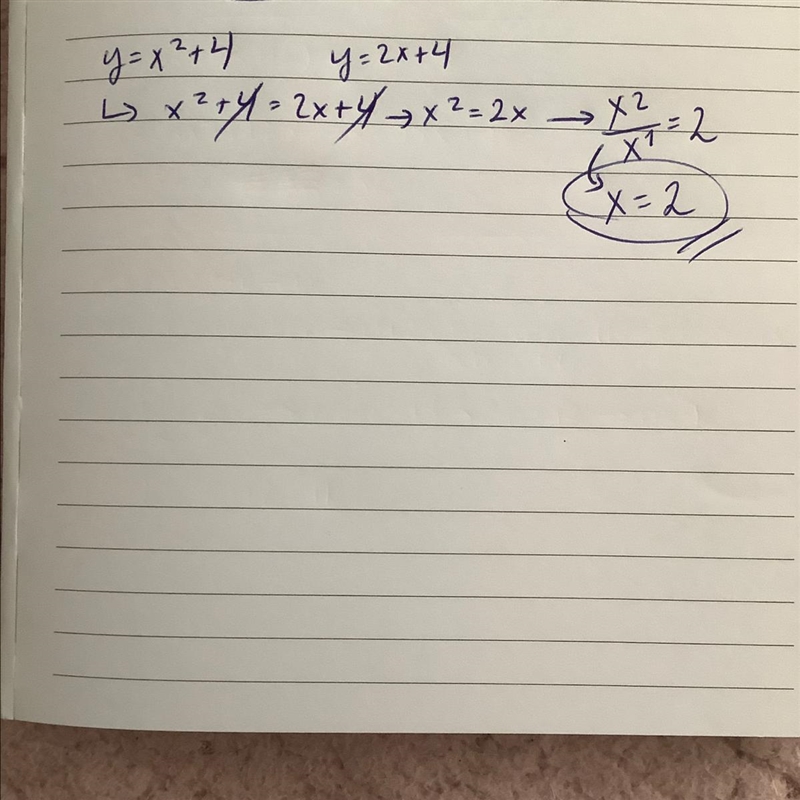 y=x²+4 y=2x+4
↳ x²+4 = 2x+4 → x²=2x → x²/x¹ = 2
↳ x=2